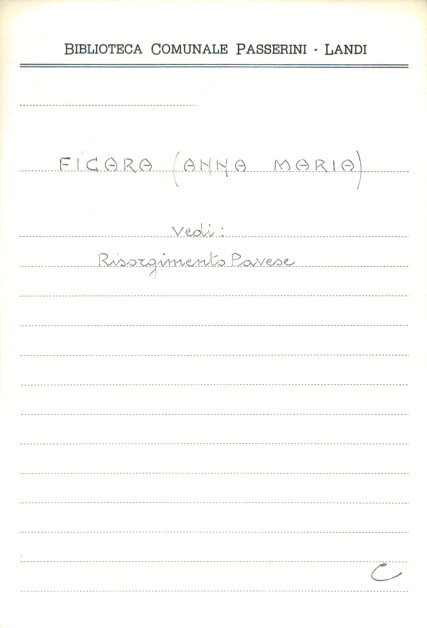 BIBLIOTECA COMUNALE PASSERINI - LANDI
FICARA (ANNA MARIA)
Vedi:
Risorgimento Pavese
C